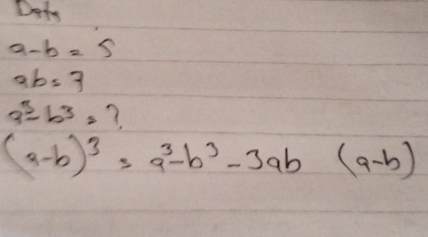 Data
a-b = 5
ab = 7
a³-b³ = ?
(a-b)³ = a³-b³-3ab (a-b)